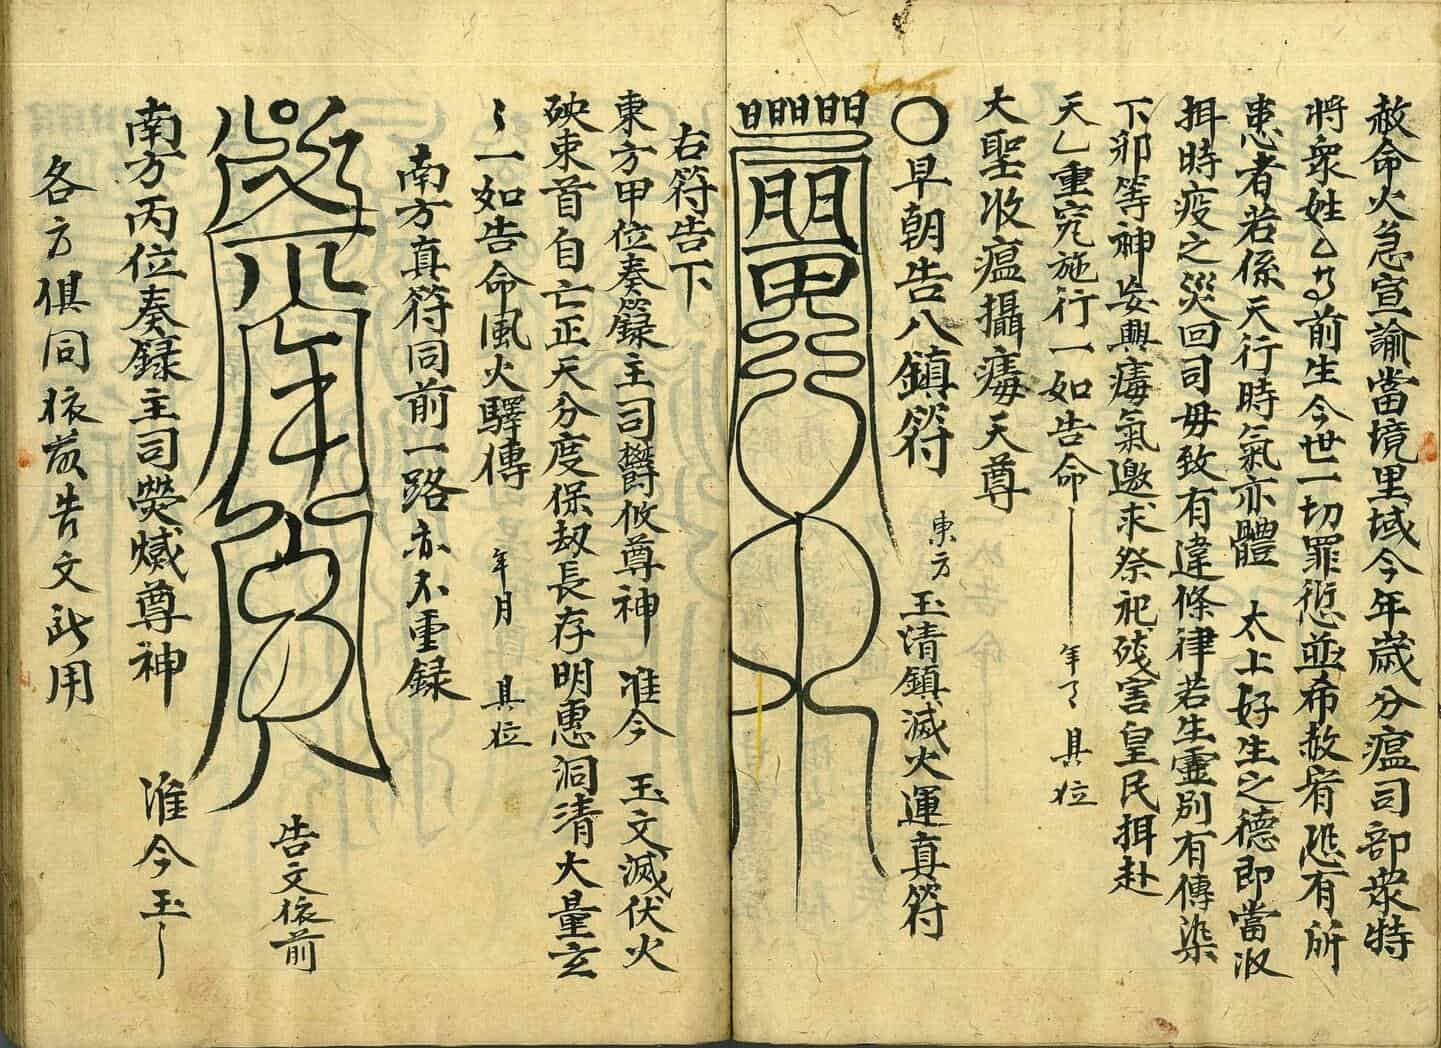 赦命火急宣諭當境里域今年歲分瘟司部眾特
將眾姓乙等前生今世一切罪愆並希赦宥恐有所
患者若係天行時氣亦體　太上好生之德即當收
拜時疫之災回司毋致有違條律若生靈別有傳染
下邪等神妄興瘼氣邀求祭祀殘害皇民拜赴
天乙重究施行一如告命　年月　具位
大聖收瘟攝毒天尊
〇早朝告八鎮符　東方　玉清鎮滅火運真符
右符告下
東方甲位奏籙主司欝攸尊神　准今　玉文滅伏火
殃束首自亡正天分度保劫長存明惠洞清大量玄
〻一如告命風火驛傳　年月　具位
南方真符同前一路亦不重録
告文依前
南方丙位奏録主司熒惑尊神　准今玉
各方俱同依茲告文訃用